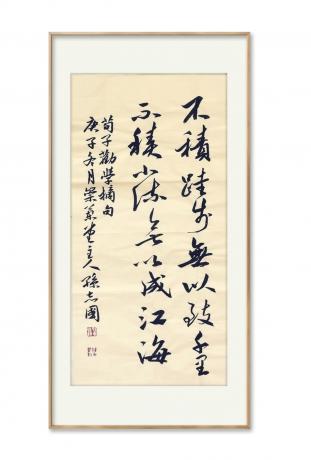 不積跬步無以致千里
不積小流無以成江海
荀子勸學摘句
庚子冬月崇篆堂主人孫志國